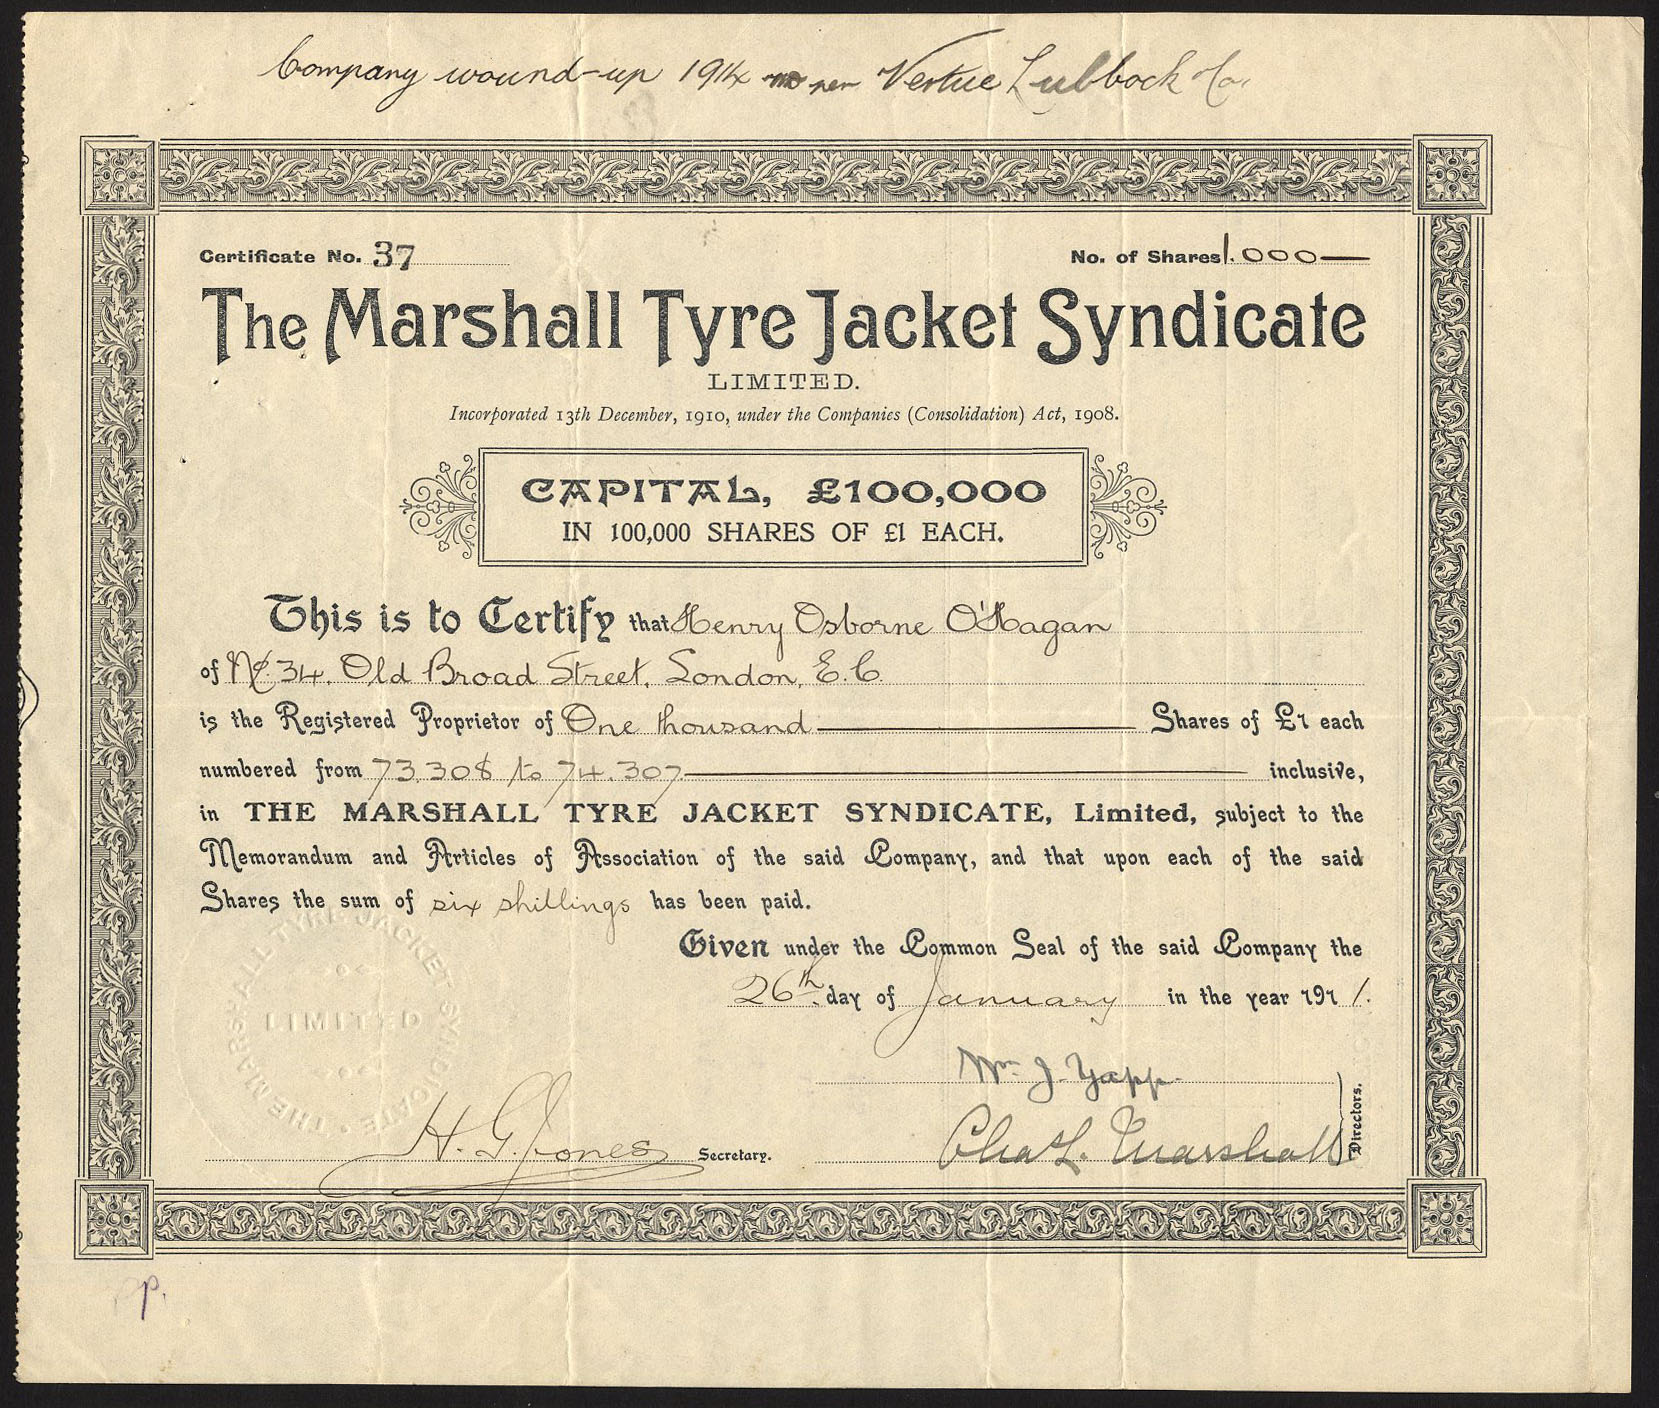 Company wound-up 1914 per Vertue Lubbock Co.
Certificate No. 37
No. of Shares 1.000—
The Marshall Tyre Jacket Syndicate
LIMITED.
Incorporated 13th December, 1910, under the Companies (Consolidation) Act, 1908.
CAPITAL, £100,000
IN 100,000 SHARES OF £1 EACH.
This is to Certify that Henry Osborne O'Hagan
of No. 34, Old Broad Street, London, E.C.
is the Registered Proprietor of One thousand — Shares of £1 each
numbered from 73,308 to 74,307 — inclusive,
in THE MARSHALL TYRE JACKET SYNDICATE, Limited, subject to the
Memorandum and Articles of Association of the said Company, and that upon each of the said
Shares the sum of six shillings has been paid.
Given under the Common Seal of the said Company the
26th day of January in the year 1911.
THE MARSHALL TYRE JACKET SYNDICATE
LIMITED
Wm. J. Yapp.
H. G. Jones Secretary.
Chas L. Marshall
Directors.